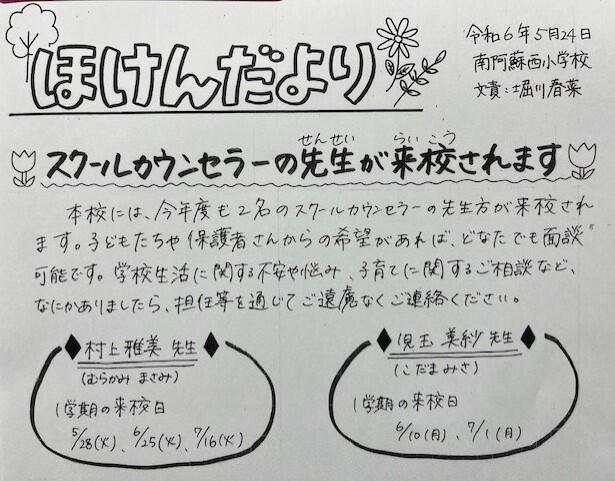 令和6年5月24日
ほけんだより
南阿蘇西小学校
文責:堀川春菜
せんせい らいこう
スクールカウンセラーの先生が来校されます
本校には、今年度も2名のスクールカウンセラーの先生方が来校され
ます。子どもたちや保護者さんからの希望があれば、どなたでも面談
可能です。学校生活に関する不安や悩み、子育てに関するご相談など、
なにかありましたら、担任等を通じてご遠慮なくご連絡ください。
◆村上雅美 先生◆
(むらかみ まさみ)
1学期の来校日
5/28(火)、6/25(火)、7/16(火)
◆児玉 美紗 先生◆
(こだま みさ)
1学期の来校日
6/10(月)、7/1(月)